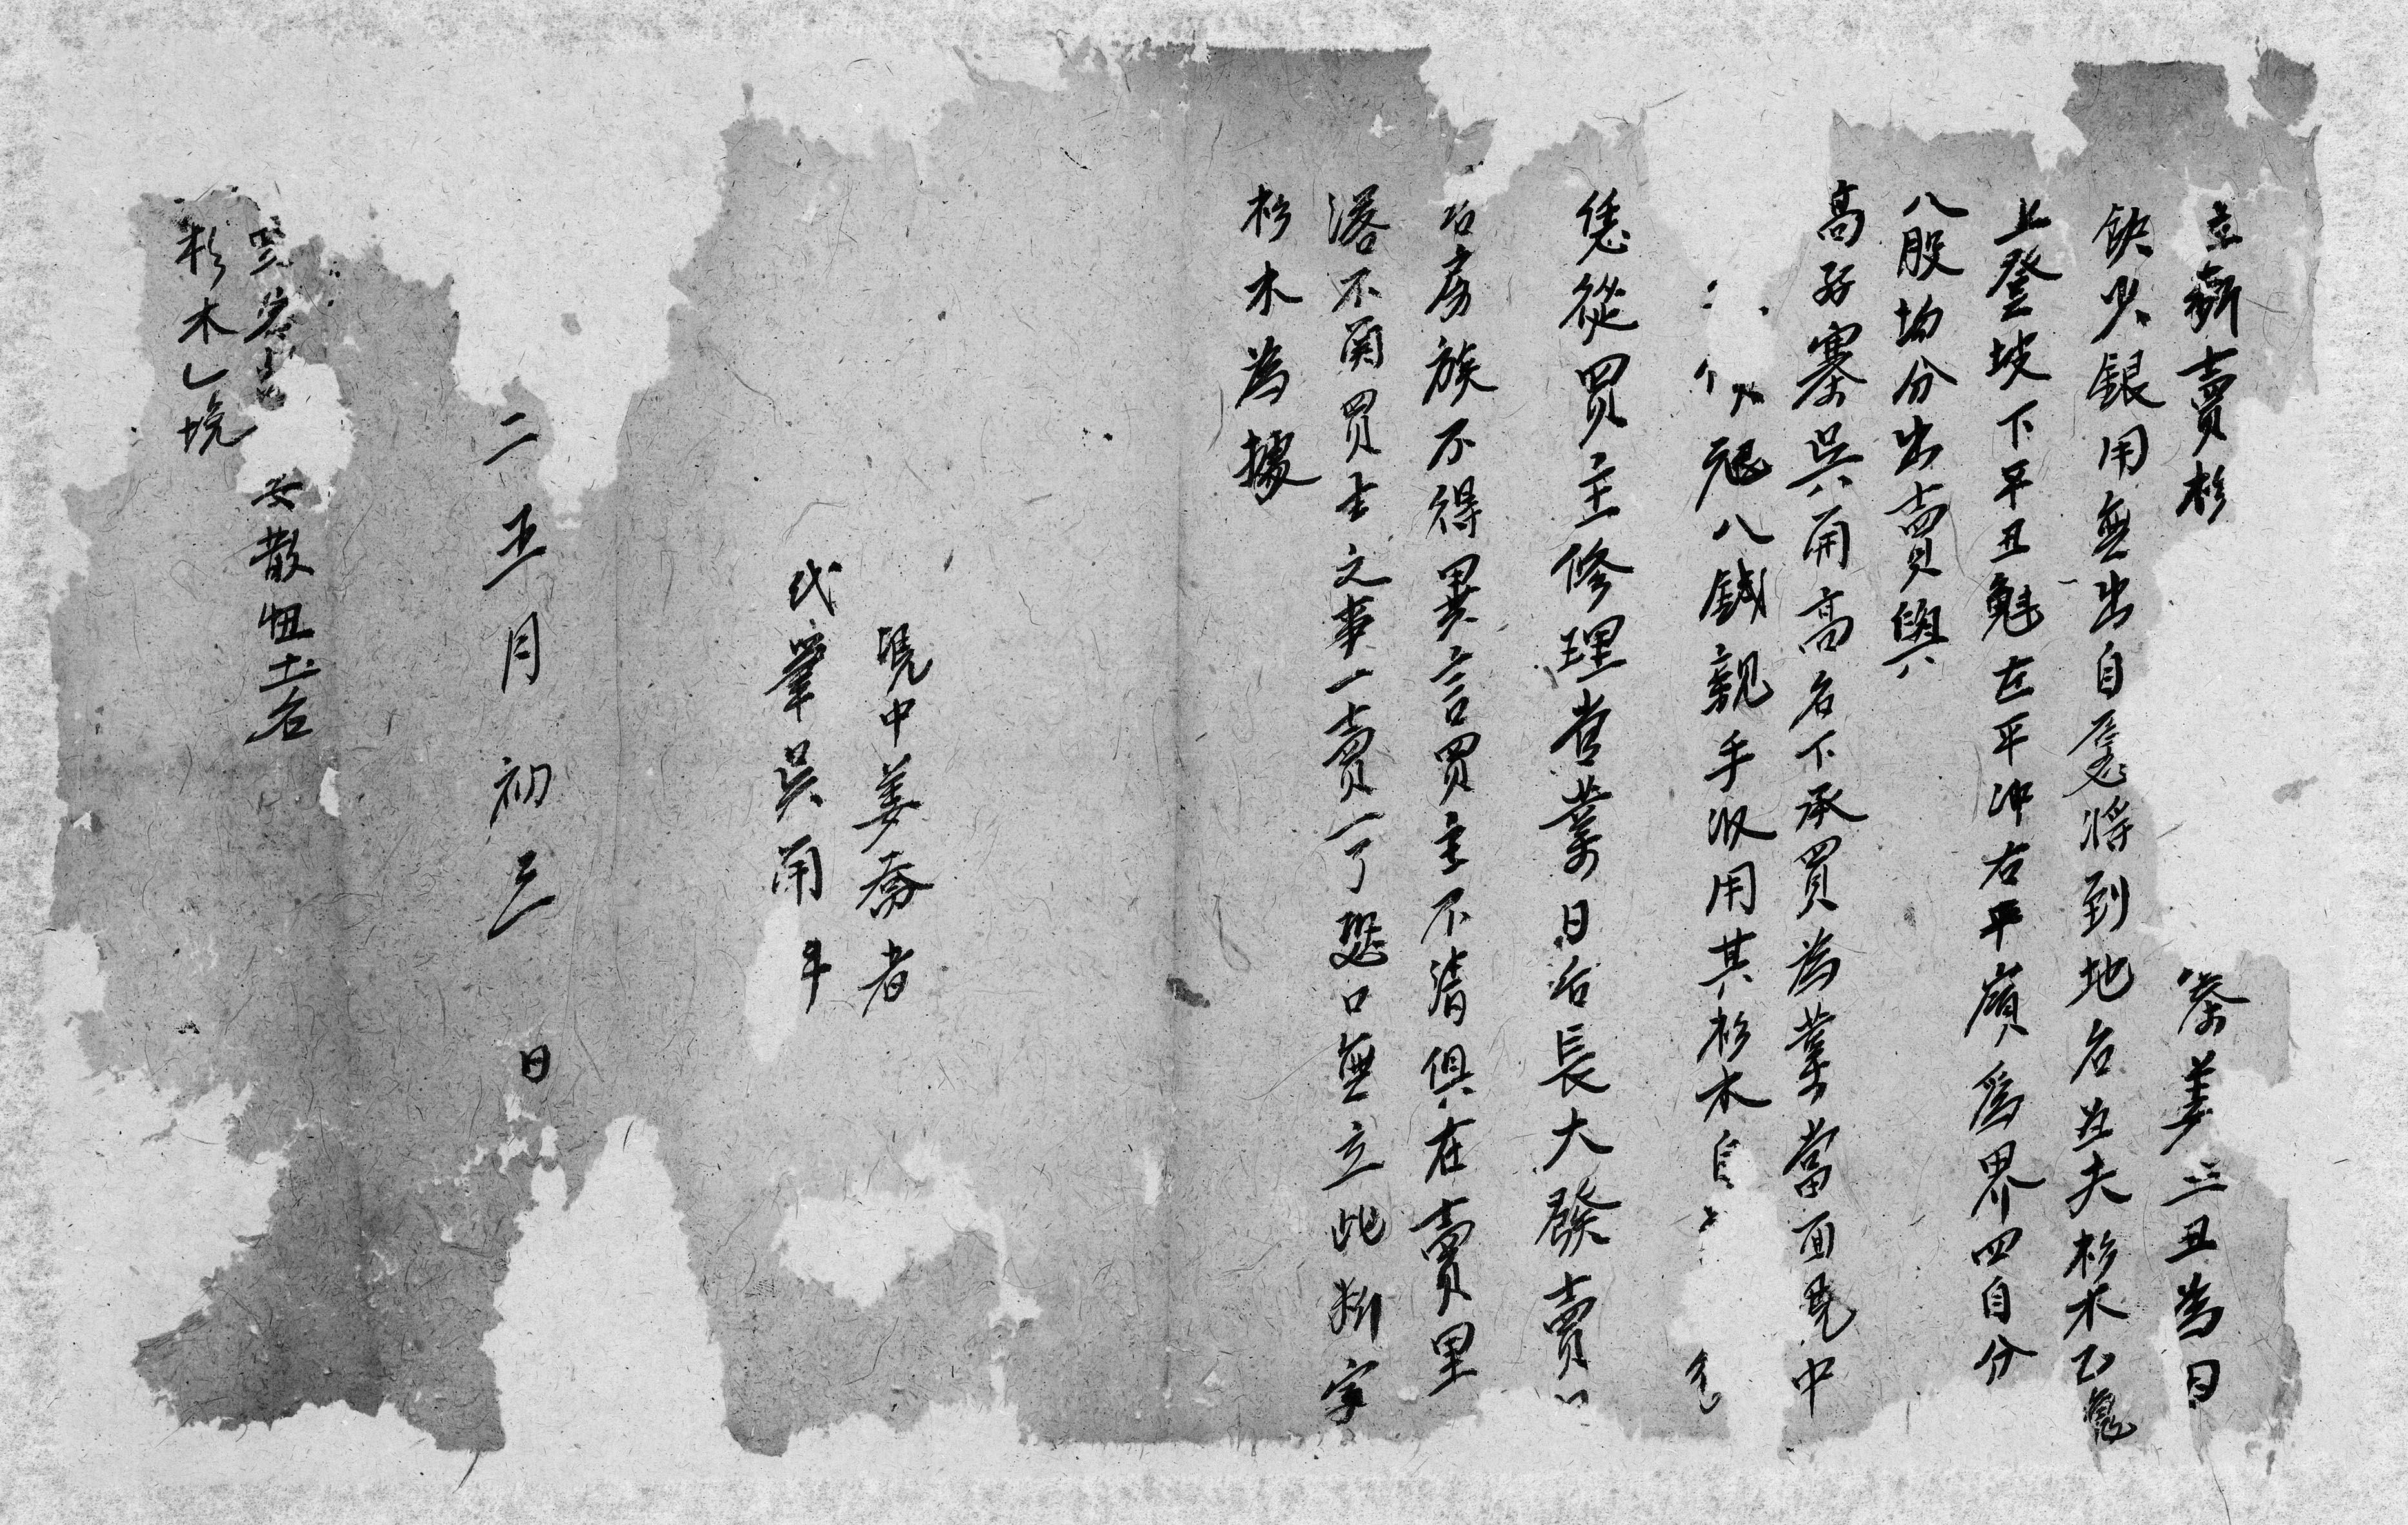 立斷賣杉 寨姜三丑為因
缺少銀用無出自愿將到地名丘夫杉木乙塊
上登坡下平丑魁左平冲右平嶺為界四自分
八股均分出賣與
高孖寨吳甬高名下承買為業當面凭中
八錢親手収用其杉木自
凭從買主修理管業日后長大發賣
后房族不得異言買主不清俱在賣里
落不甬買主之事一賣一了恐口無立此斷字
杉木為據
凭中姜喬者
代筆吳甬年
二五月初三日
安散忸土名
杉木乚塊